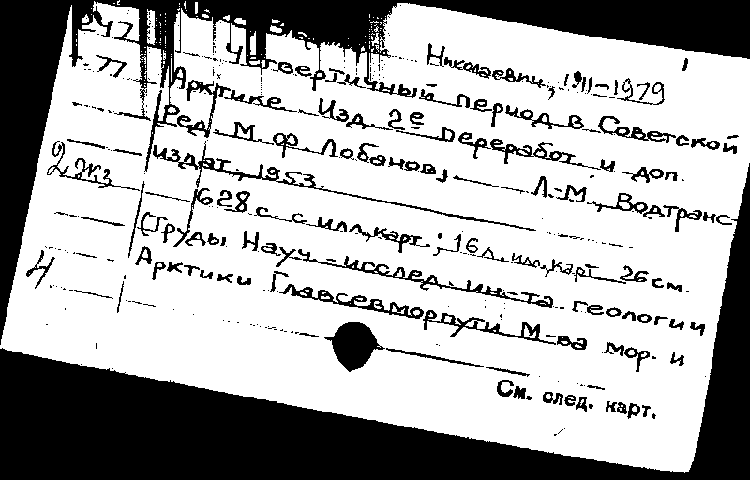 Николаевич, 1911-1979
247 Четвертичный период в Советской
т. 77 Арктике. Изд. 2е переработ. и доп.
Ред. М. Ф. Лобанов. Л.-М., Водтранс-
издат, 1953.
2 экз 628 с. с илл., карт.; 16 л. илл., карт 26 см.
(Труды Науч.-исслед. ин-та геологии
4 Арктики Главсевморпути М-ва мор. и
См. след. карт.